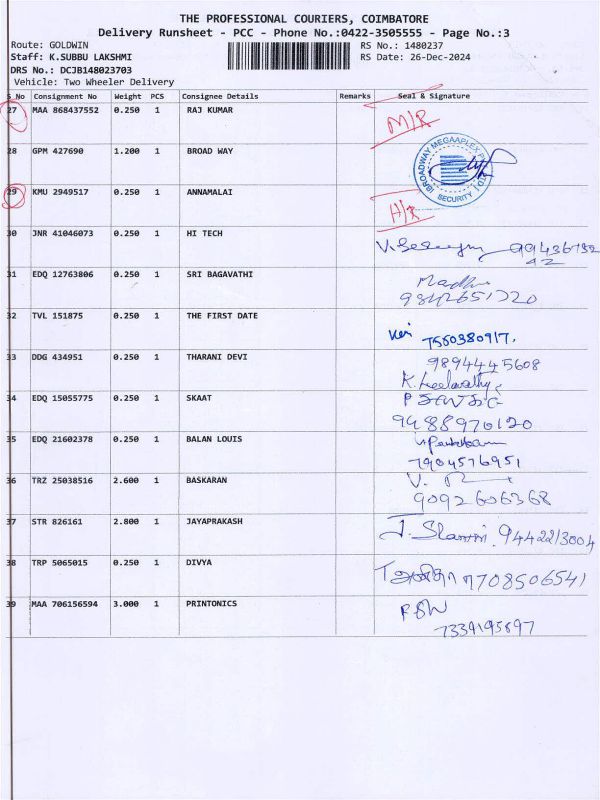 THE PROFESSIONAL COURIERS, COIMBATORE
Delivery Runsheet - PCC - Phone No.:0422-3505555 - Page No.:3
Route: GOLDWIN RS No.: 1480237
Staff: K.SUBBU LAKSHMI RS Date: 26-Dec-2024
DRS No.: DCJB148023703
Vehicle: Two Wheeler Delivery
S No Consignment No Weight PCS Consignee Details Remarks Seal & Signature
27 MAA 868437552 0.250 1 RAJ KUMAR M/R
28 GPM 427690 1.200 1 BROAD WAY BROADWAY MEGAAPLEX SECURITY
29 KMU 2949517 0.250 1 ANNAMALAI H/R
30 JNR 41046073 0.250 1 HI TECH
31 EDQ 12763806 0.250 1 SRI BAGAVATHI Madhu
9842651720
32 TVL 151875 0.250 1 THE FIRST DATE
7550380917.
33 DDG 434951 0.250 1 THARANI DEVI 9894445608
34 EDQ 15055775 0.250 1 SKAAT
9488970120
35 EDQ 21602378 0.250 1 BALAN LOUIS
7904576951
36 TRZ 25038516 2.600 1 BASKARAN
9092606368
37 STR 826161 2.800 1 JAYAPRAKASH 9442213004
38 TRP 5065015 0.250 1 DIVYA 7708506541
39 MAA 706156594 3.000 1 PRINTONICS
7339195897